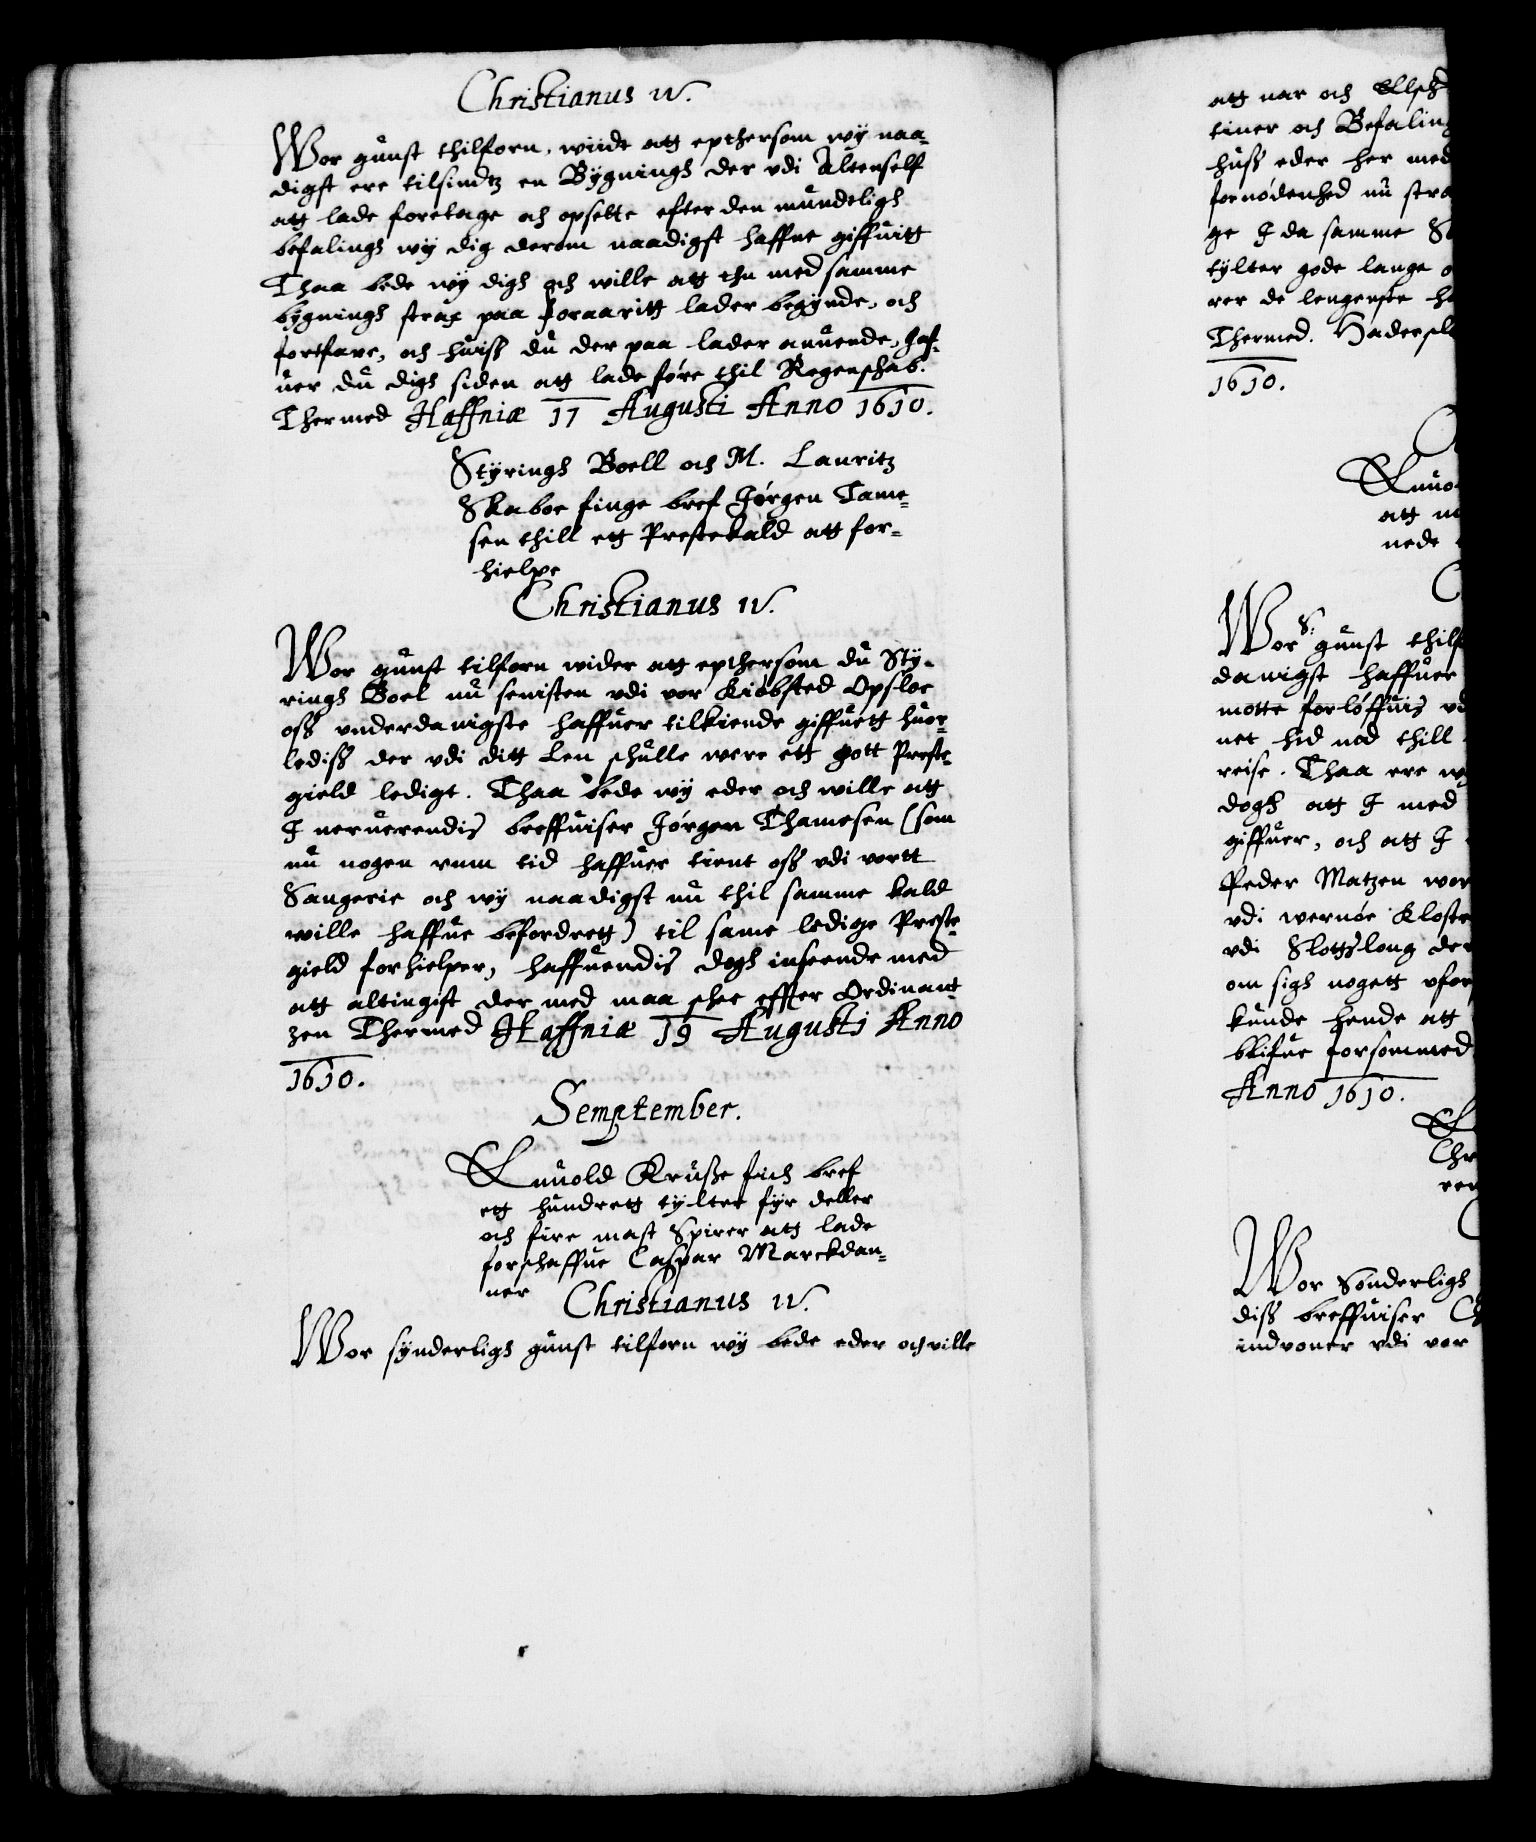 Christianus IV.
Wor gunst thilforn, wiidt att epthersom wy naa-
digst ere tilsindtz en Bygningh der vdi Altenself
att lade foretage och opsette efter den mundeligh
befalingh wy dig derom naadigst haffue giffuitt
Thaa bede wy digh och wille att thu med samme
bygningh strax paa foraaritt lader begynde, och
fortfare, och huiss du der paa lader anuende, haf-
uer du digh siden att lade føre thil Regenschab.
Thermed Haffniæ 17 Augusti Anno 1610.
Styringh Boell och M. Lauritz
Skaboe finge bref Jørgen Tame-
sen thill ett Prestekald att for-
hielpe
Christianus IV.
Wor gunst tilforn wider att epthersom du Sty-
ringh Boel nu senisten vdi vor Kiøbsted Opsloe
oss vnderdanigste haffuer tilkiende giffuett huor-
lediss der vdi ditt Len schulle were ett gott Preste-
gield ledigt. Thaa bede wy eder och wille att
I neruerendis breffuiser Jørgen Thamesen (som
nu nogen rum tid haffuer tient oss vdi vortt
Sangerie och wy naadigst nu thil samme kald
wille haffue befordrett) til same ledige Preste-
gield forhielper, haffuendis dogh inseende med
att altingist der med maa schee effter Ordinant-
zen Thermed Haffniæ 19 Augusti Anno
1610.
Semptember.
Enuold Krusse fich bref
ett hundrett tylter fyr deller
och fire mast Spirer att lade
forschaffue Caspar Marckdan-
ner
Christianus IV.
Wor synderligh gunst tilforn wy bede eder och wille
att nar och
tiner och Befaling
huss eder her med
fornødenhed nu stra
ge I da samme
tylter gode lange
rer de lengenste
Thermed. Hadersl
1610.
Enuo
att
nede
Wor S: gunst thilf
danigst haffuer
motte forløffuis vd
net hid ned thill
reise. Thaa ere wy
dogh att I med
giffuer, och att I
Peder Matzen wor
vdi wernøe Kloste
vdi Slottslong der
om sigh nogett vfor
kunde hende att
blifue forsommed
Anno 1610.
Chr
ren
Wor Sonderligh
diss breffuiser
indvoner vdi vor